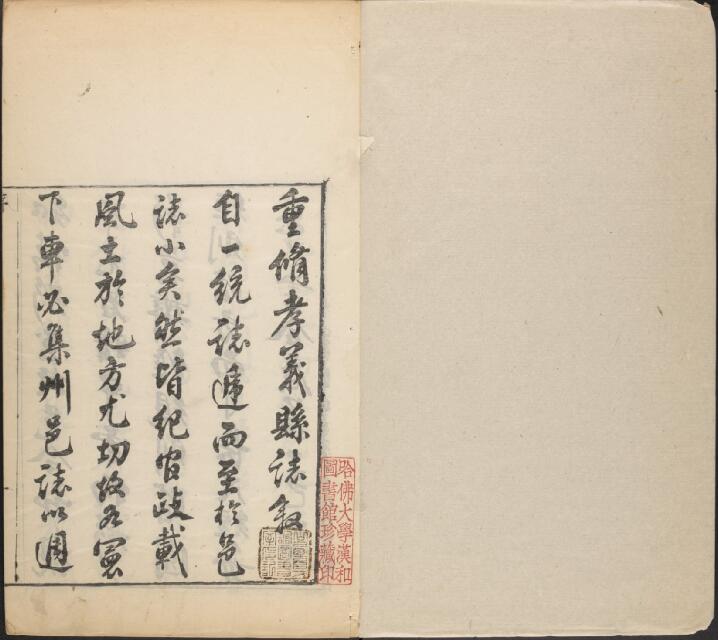 重脩孝義縣誌叙
自一統誌遞而至於邑
誌小矣然皆紀官政載
風土於地方尤切故各憲
下車必集州邑誌以週
哈佛大學漢和
圖書館珍藏印
序